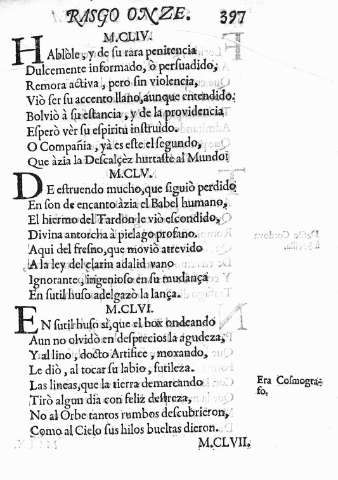 RASGO ONZE. 397
M.CLIV.
HAblòle, y de su rara penitencia
Dulcemente informado, ò persuadido,
Remora activa, pero sin violencia,
Viò ser su accento llano, aunque entendido:
Bolviò à su estancia, y de la providencia
Esperò vèr su espiritu instruido.
O Compañia, yà es este el segundo,
Que àzia la Descalçèz hurtaste al Mundo!
M.CLV.
DE estruendo mucho, que siguiò perdido
En son de encanto àzia el Babel humano,
El hiermo del Tardòn le viò escondido,
Divina antorcha à pielago profano.
Aqui del fresno, que moviò atrevido
A la ley del clarin adalid vano
Ignorante, ingenioso en su mudança
En sutil huso adelgazò la lança.
M.CLVI.
EN sutil huso sì, que el box ondeando
Aun no olvidò en desprecios la agudeza,
Y al lino, docto Artifice, moxando,
Le diò, al tocar su labio, sutileza.
Las lineas, que la tierra demarcando
Tirò algun dia con feliz destreza,
No al Orbe tantos rumbos descubrieron,
Como al Cielo sus hilos bueltas dieron.
Era Cosmogra-
fo,
M.CLVII.